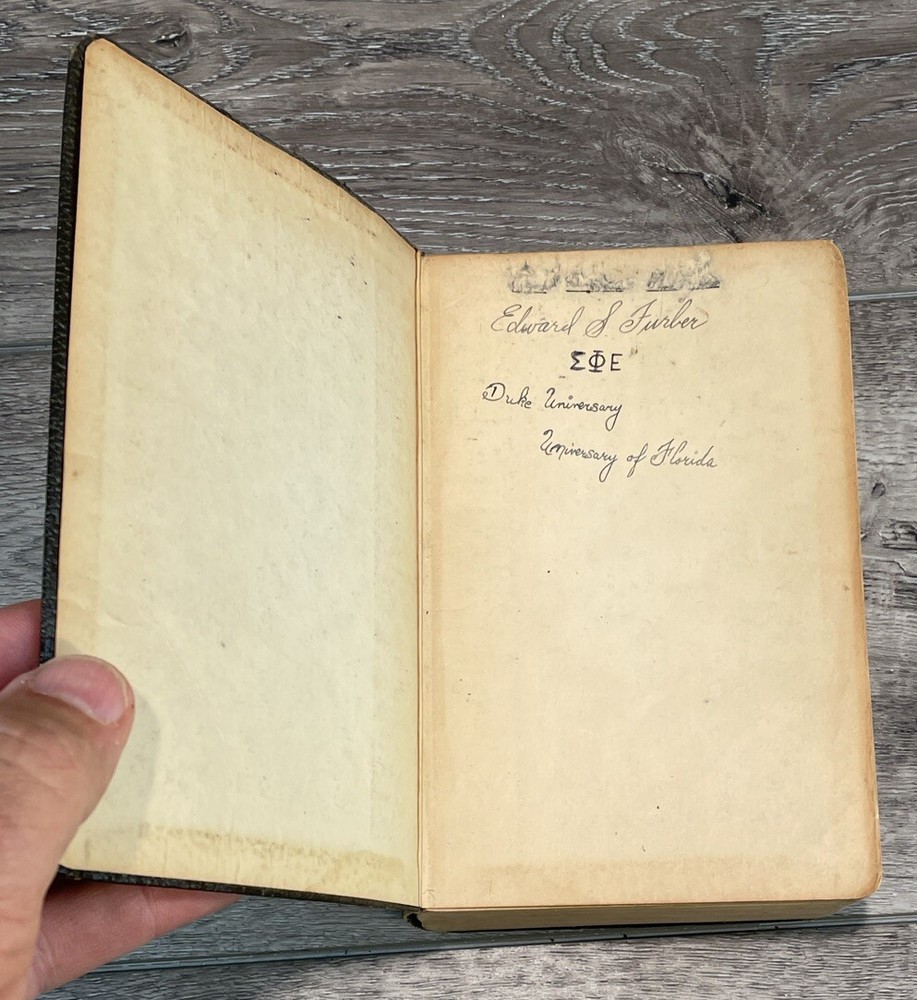 Edward S Furber
ΣΦΕ
Duke Universary
Universary of Florida